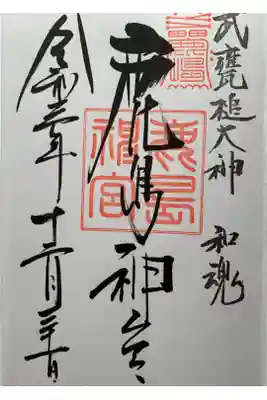 武甕槌大神 和魂
鹿島神宮
鹿島
神宮
令和三年 十二月三十日